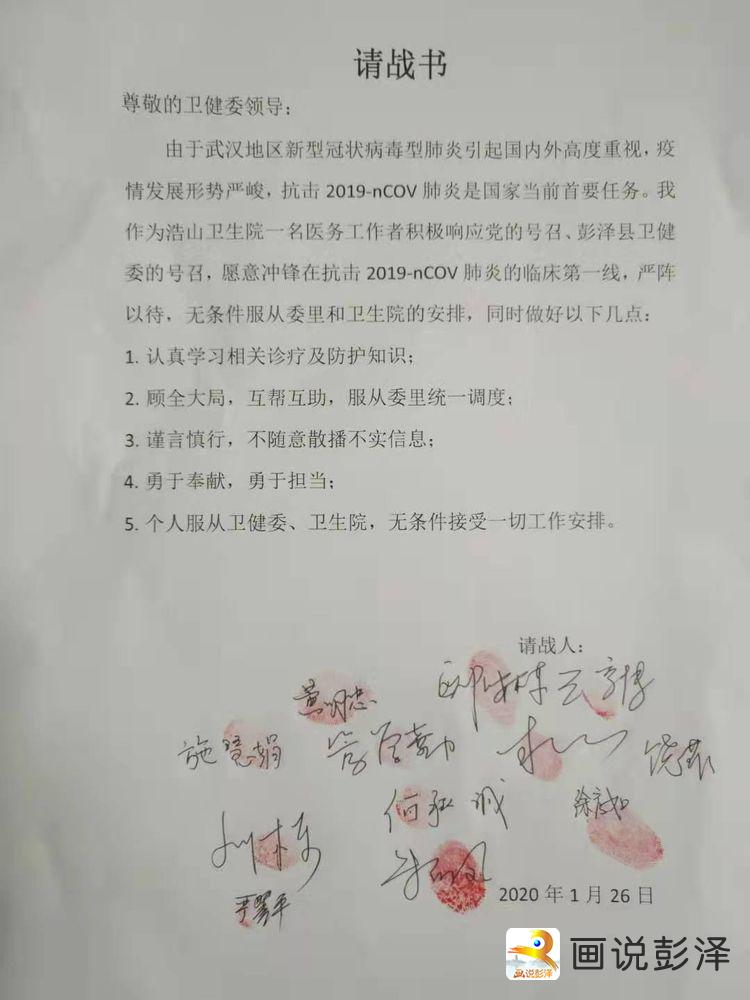 请战书
尊敬的卫健委领导：
由于武汉地区新型冠状病毒型肺炎引起国内外高度重视，疫
情发展形势严峻，抗击 2019-nCOV 肺炎是国家当前首要任务。我
作为浩山卫生院一名医务工作者积极响应党的号召、彭泽县卫健
委的号召，愿意冲锋在抗击 2019-nCOV 肺炎的临床第一线，严阵
以待，无条件服从委里和卫生院的安排，同时做好以下几点：
1. 认真学习相关诊疗及防护知识；
2. 顾全大局，互帮互助，服从委里统一调度；
3. 谨言慎行，不随意散播不实信息；
4. 勇于奉献，勇于担当；
5. 个人服从卫健委、卫生院，无条件接受一切工作安排。
请战人：
黄明忠
施慧娟
2020 年 1 月 26 日
画说彭泽
画说彭泽